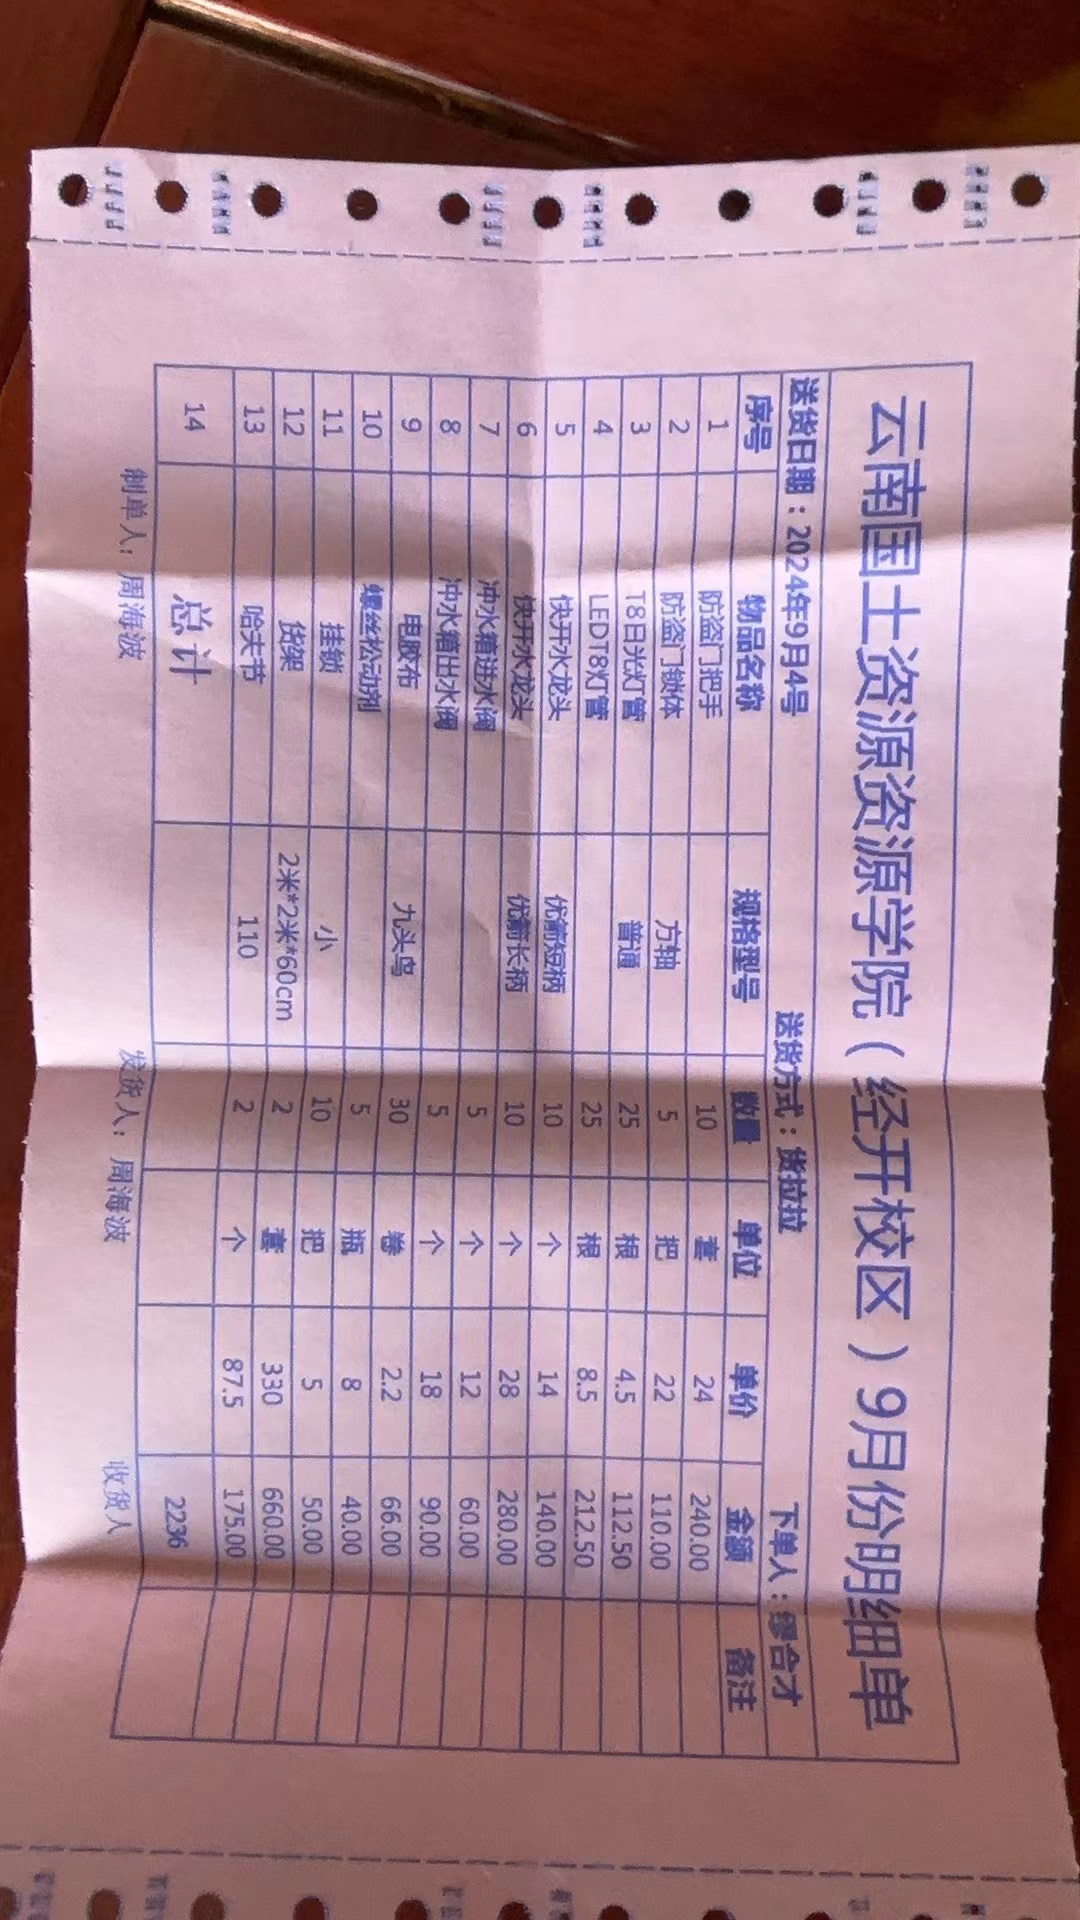 云南国土资源资源学院（经开校区）9月份明细单
送货日期：2024年9月4号 送货方式：货拉拉 下单人：缪合才
序号 物品名称 规格型号 数量 单位 单价 金额 备注
1 防盗门把手 10 套 24 240.00
2 防盗门锁体 方轴 5 把 22 110.00
3 T8日光灯管 普通 25 根 4.5 112.50
4 LEDT8灯管 25 根 8.5 212.50
5 快开水龙头 优箭短柄 10 个 14 140.00
6 快开水龙头 优箭长柄 10 个 28 280.00
7 冲水箱进水阀 5 个 12 60.00
8 冲水箱出水阀 5 个 18 90.00
9 电胶布 九头鸟 30 卷 2.2 66.00
10 螺丝松动剂 5 瓶 8 40.00
11 挂锁 小 10 把 5 50.00
12 货架 2米*2米*60cm 2 套 330 660.00
13 哈夫节 110 2 个 87.5 175.00
14 总计 2236
制单人：周海波 发货人：周海波 收货人